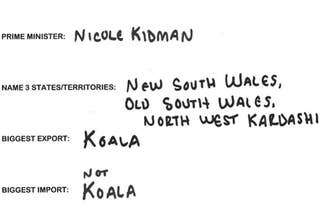 PRIME MINISTER: NICOLE KIDMAN
NAME 3 STATES/TERRITORIES: NEW SOUTH WALES,
OLD SOUTH WALES,
NORTH WEST KARDASHI
BIGGEST EXPORT: KOALA
NOT
BIGGEST IMPORT: KOALA